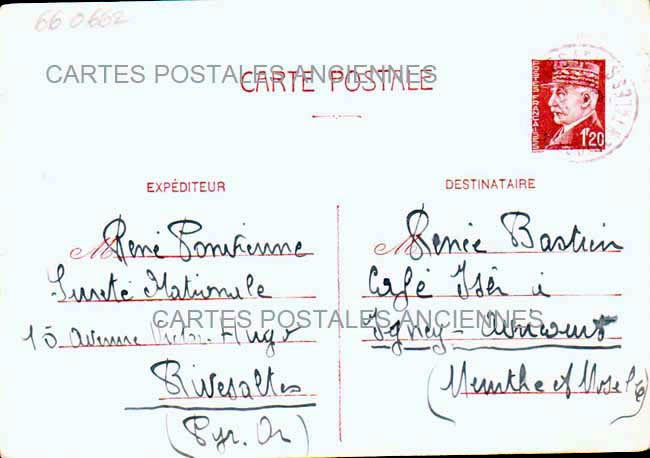 66 0662
CARTES POSTALES ANCIENNES
CARTE POSTALE
POSTES FRANÇAISES
1F20
EXPÉDITEUR
M René
Sureté Nationale
15 Avenue Victor Hugo
Rivesaltes
(Pyr. Or)
DESTINATAIRE
M Renée Bastien
Café à
Igney-Avricourt
(Meurthe et Moselle)
CARTES POSTALES ANCIENNES